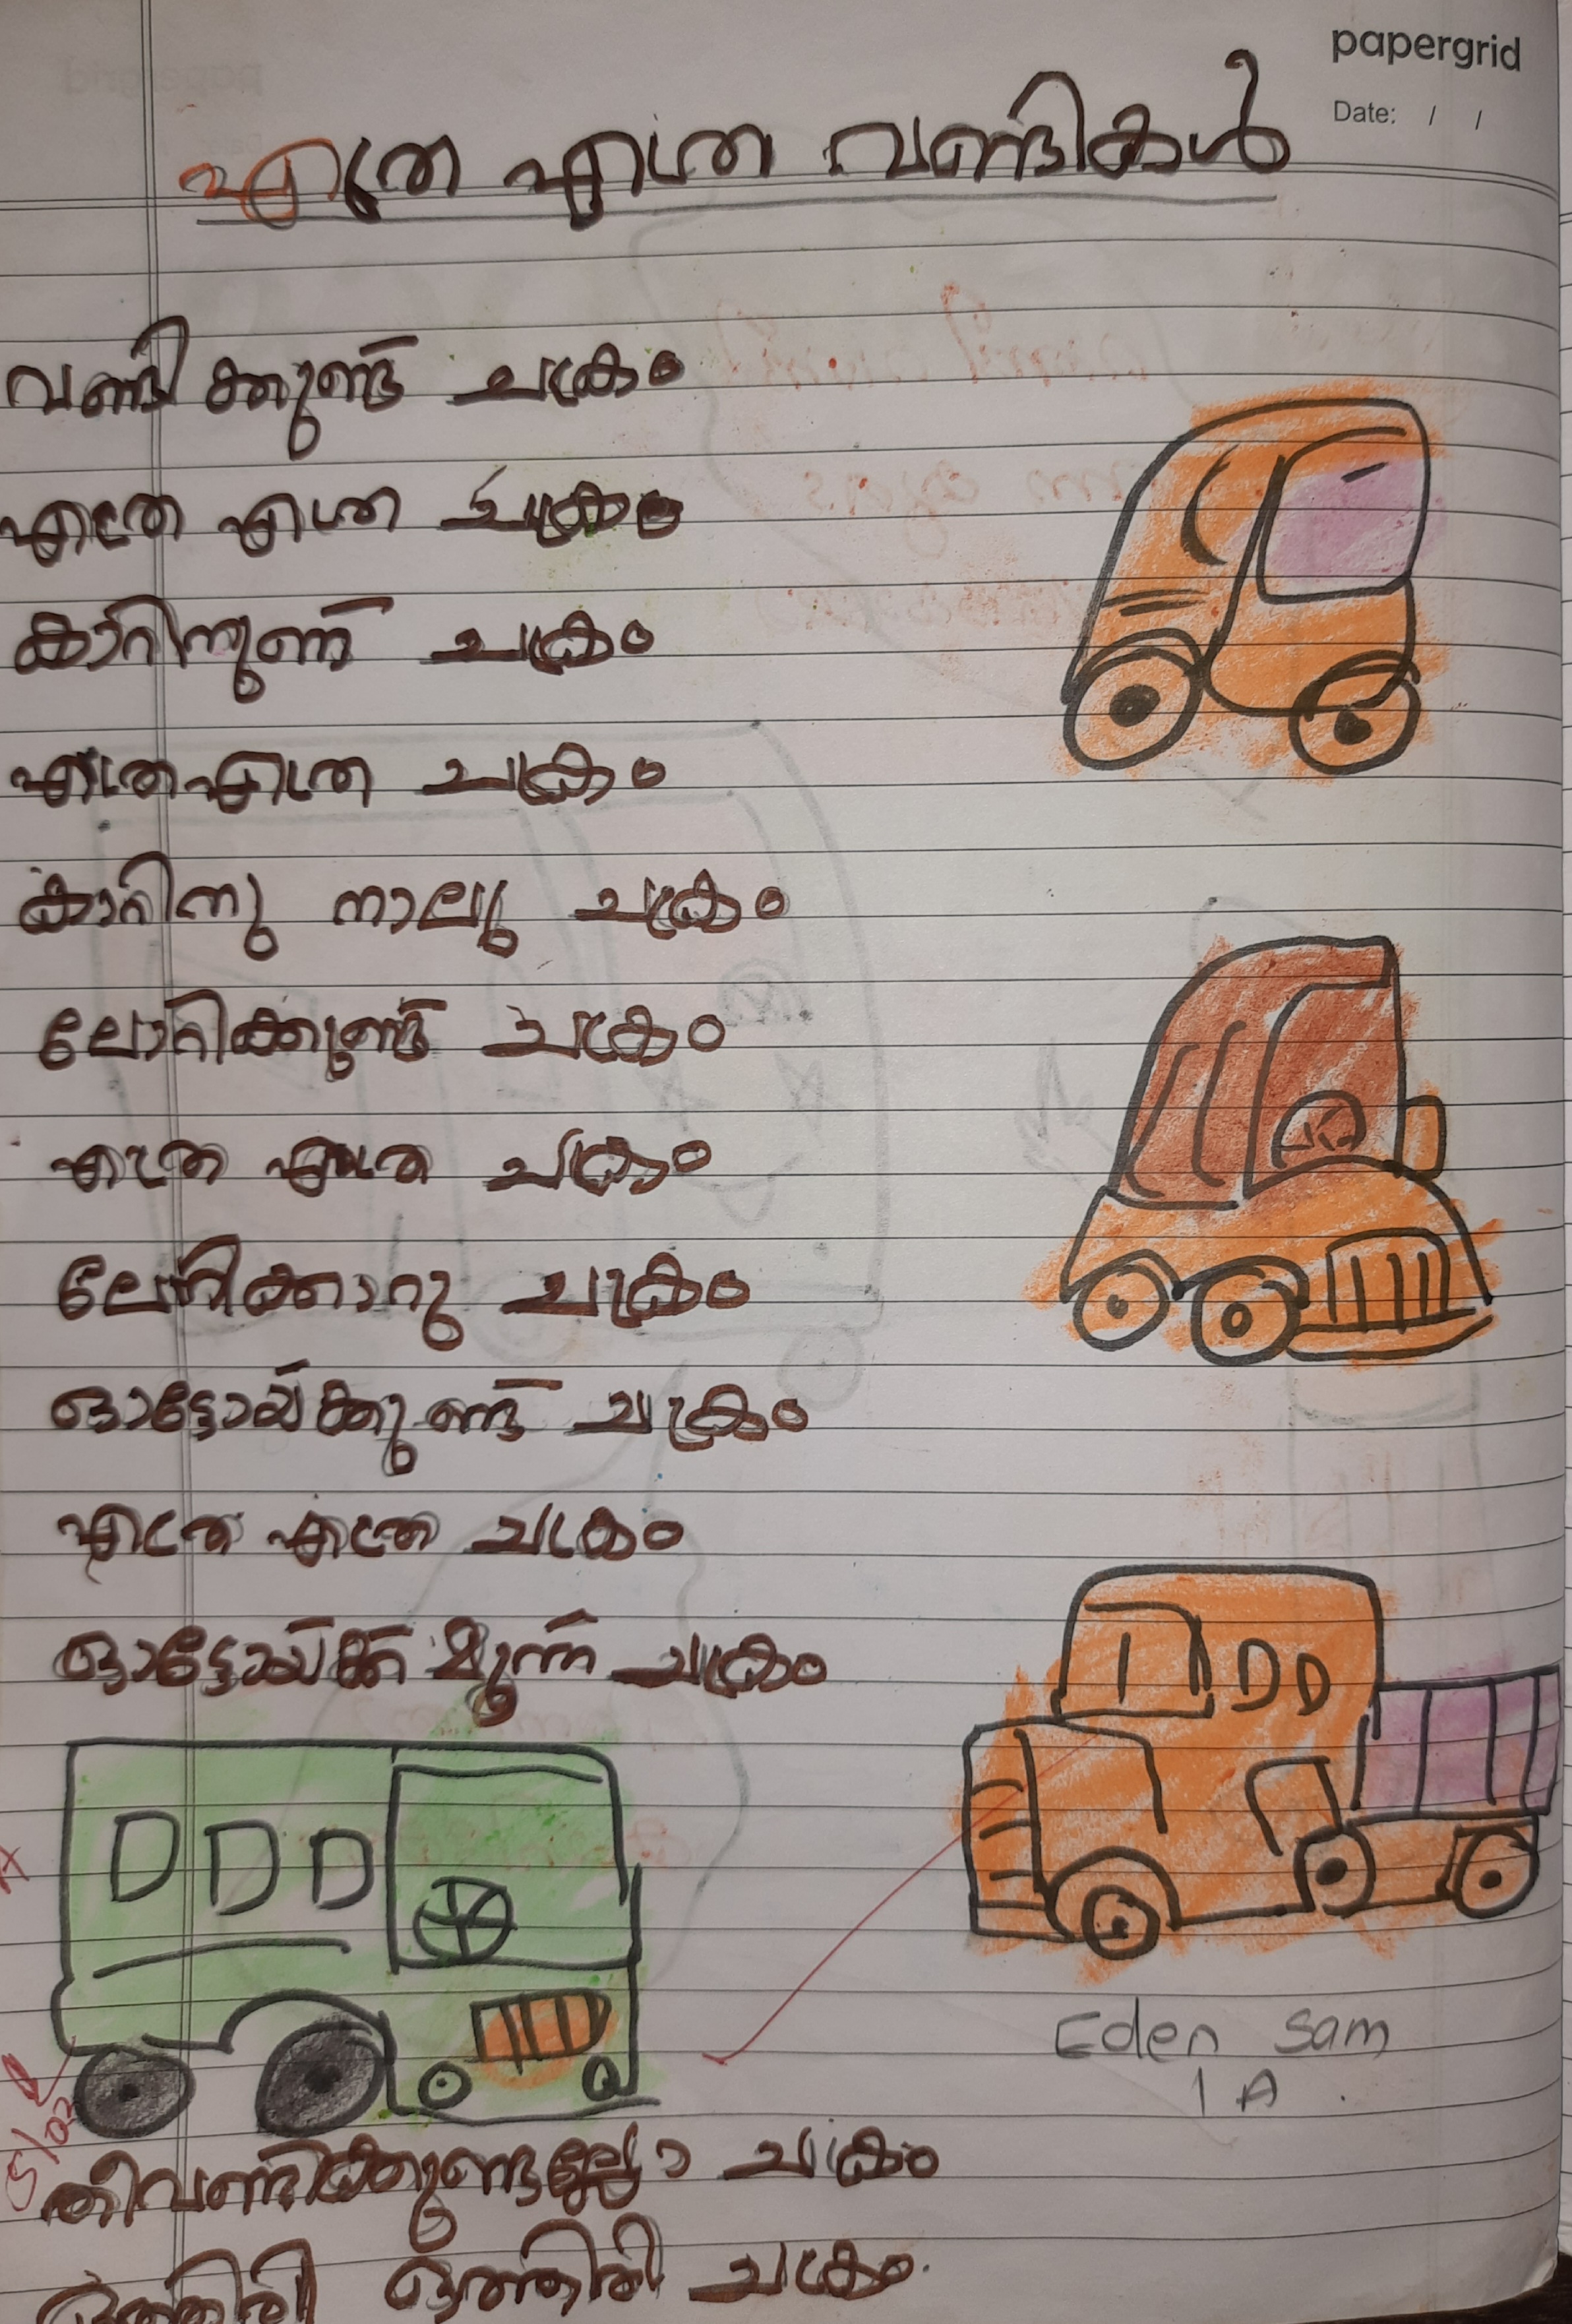 papergrid
Date: / /
എത്ര എത്ര വണ്ടികൾ
വണ്ടിക്കുണ്ട് ചക്രം
എത്ര എത്ര ചക്രം
കാറിനുണ്ട് ചക്രം
എത്ര എത്ര ചക്രം
കാറിനു നാലു ചക്രം
ലോറിക്കുണ്ട് ചക്രം
എത്ര എത്ര ചക്രം
ലോറിക്കാറു ചക്രം
ഓട്ടോയ്ക്കുണ്ട് ചക്രം
എത്ര എത്ര ചക്രം
ഓട്ടോയ്ക്ക് മൂന്ന് ചക്രം
Eden Sam
1 A
തീവണ്ടിക്കുണ്ടല്ലോ ചക്രം
ഒത്തിരി ഒത്തിരി ചക്രം.